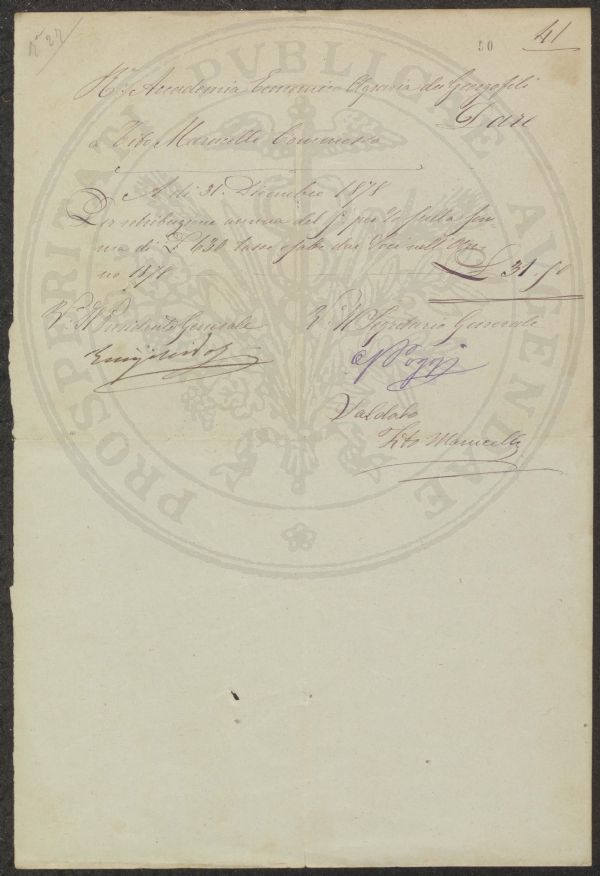 N° 27
50
41
R. Accademia Economico Agraria dei Georgofili
Dare
a Tito Marucelli Commesso
A dì 31 Dicembre 1878
Per retribuzione annua del 5 per % sulla som-
ma di £ 630 tasse esatte dai Soci nell' An-
no 1878
£ 31.50
V° Il Presidente Generale
V° Il Segretario Generale
Saldato
Tito Marucelli
PROSPERITATI PVBLICAE AVGENDAE